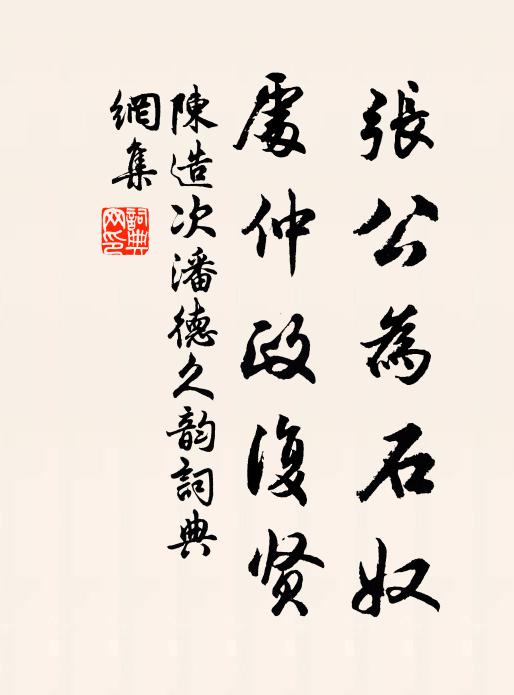 張公為石奴
處仲政復賢
陳造次潘德久韵詞典
網集
詞典網印